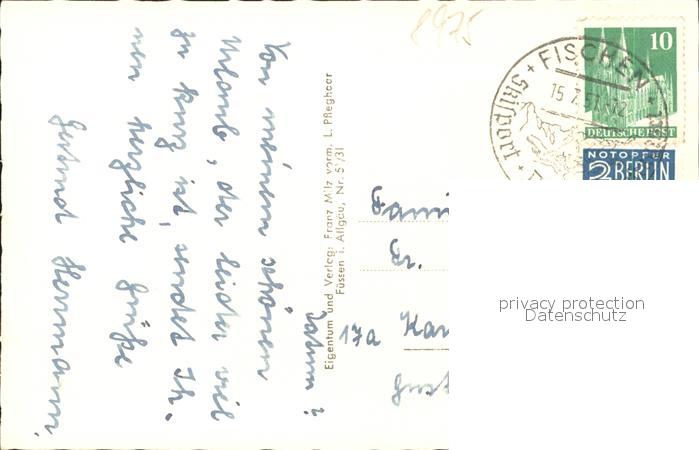 8975
Datum?
Von meinem schönen
Urlaub, der leider viel
zu kurz ist, sendet Ih-
nen herzliche Grüße
Gertrud Herrmann.
Eigentum und Verlag: Franz Milz vorm. L. Pflegheer
Füssen i. Allgäu, Nr. 51/31
FISCHEN
15.7.51-12
Skisport
10
DEUTSCHE POST
NOTOPFER
2 BERLIN
Fami
Dr.
17a Kar
Gust
privacy protection
Datenschutz